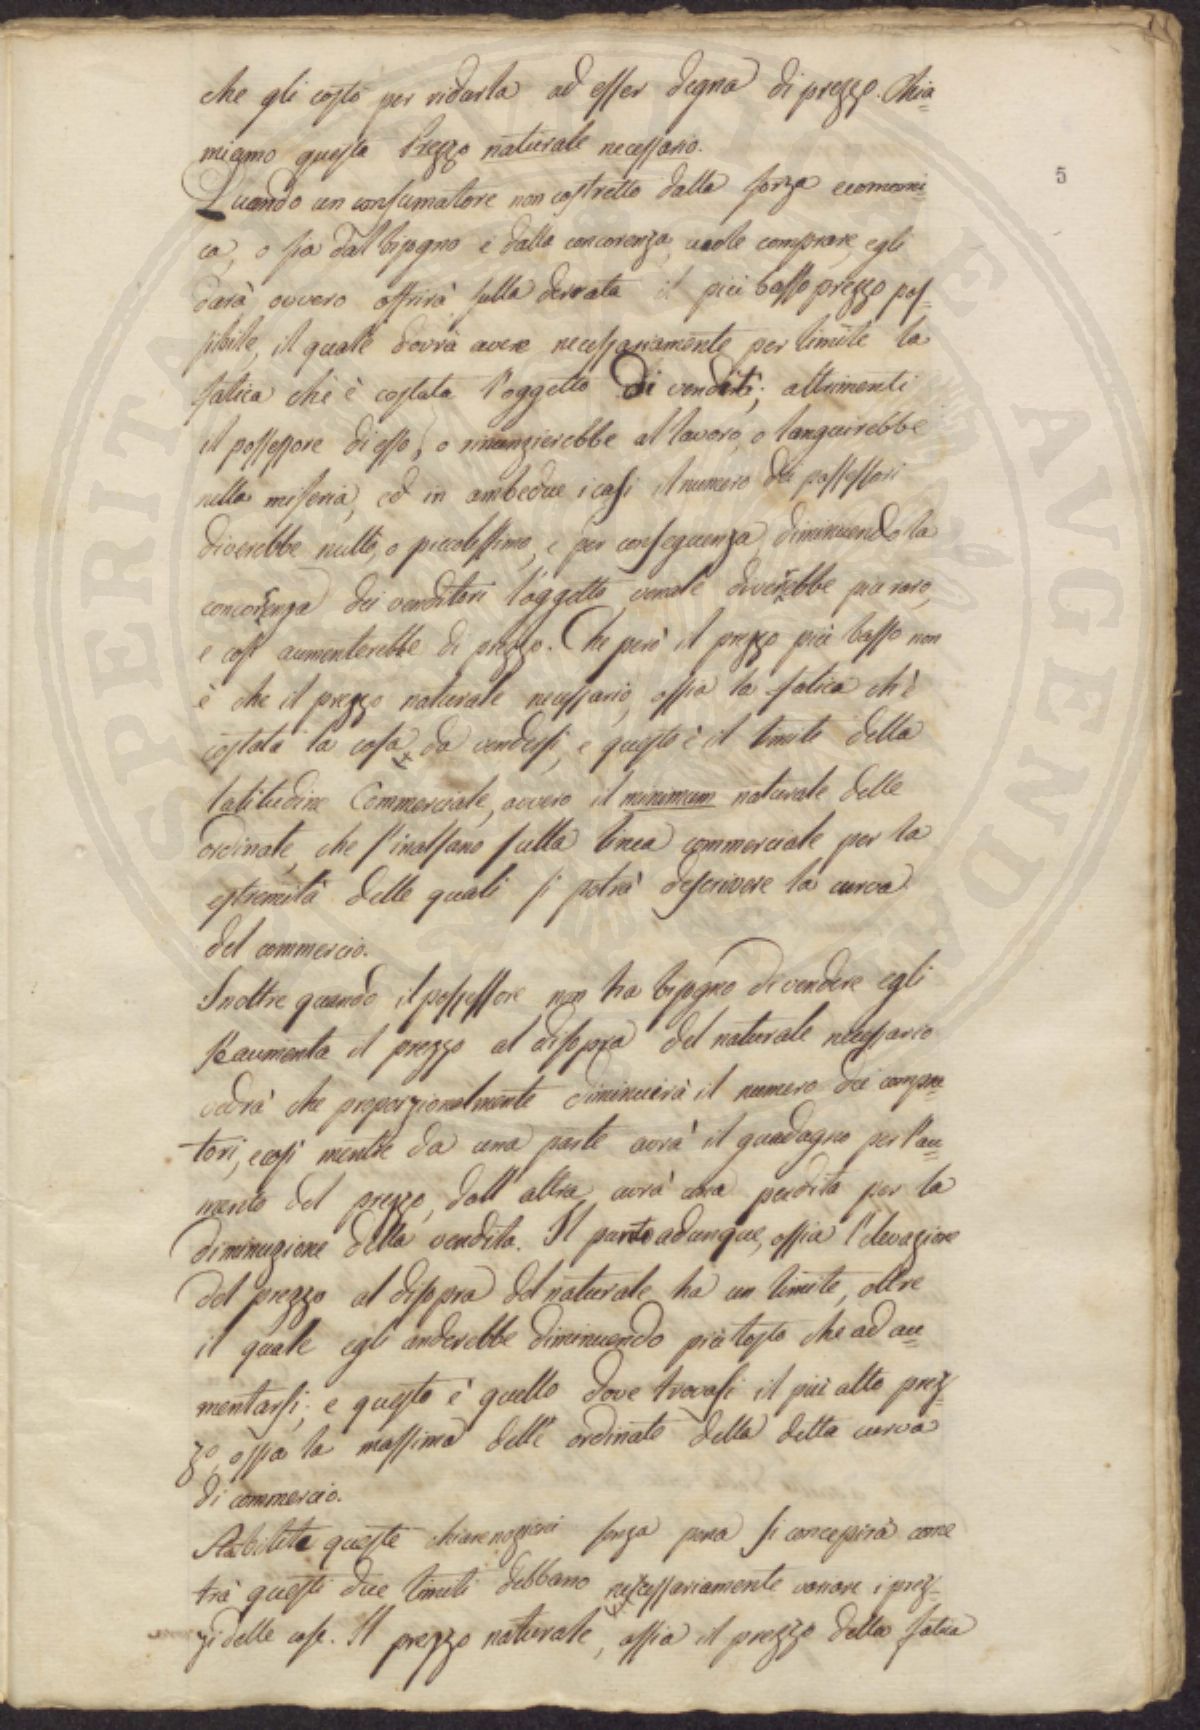 che gli costò per ridurla ad esser degna di prezzo. Chia=
miamo questa Prezzo naturale necessario.
5
Quando un consumatore non costretto dalla forza economi=
ca, o sia dal bisogno e dalla concorenza, vuole comprare, egli
darà ovvero offrirà sulla derrata il più basso prezzo pos=
sibile, il quale dovrà avere necessariamente per limite la
fatica ch'è costata l'oggetto di venditi; altrimenti
il possessore di esso, o rinunzierebbe al lavoro, o languirebbe
nella miseria, ed in ambedue i casi il numero dei possessori
diverebbe nullo, o piccolissimo, e per conseguenza, diminuendo la
concorrenza dei venditori l'oggetto venale diverrebbe più raro,
e così aumenterebbe di prezzo. Che però il prezzo più basso non
è che il prezzo naturale necessario, ossia la fatica ch'è
costata la cosa da vendersi, e questo è il limite della
latitudine Commerciale, ovvero il minimum naturale delle
ordinate, che s'inalsano sulla linea commerciale per la
estremità delle quali si potrà descrivere la curva
del commercio.
Inoltre quando il possessore non ha bisogno di vendere egli
se aumenta il prezzo al disopra del naturale necessario
vedrà che proporzionalmente diminuirà il numero dei compra=
tori, e così mentre da una parte avrà il guadagno per l'au=
mento del prezzo, dall' altra avrà una perdita per la
diminuzione della vendita. Il punto adunque, ossia l'elevazione
del prezzo al disopra del naturale ha un limite, oltre
il quale egli anderebbe diminuendo più tosto che ad au=
mentarsi; e questo è quello dove trovasi il più alto prez=
zo, ossia la massima delle ordinate della detta curva
di commercio.
Stabilite queste chiare nozioni senza pena si concepirà come
trà questi due limiti debbano necessariamente variare i prez=
zi delle cose. Il prezzo naturale, ossia il prezzo della fatica
SPERITAT VGE AVGENDO